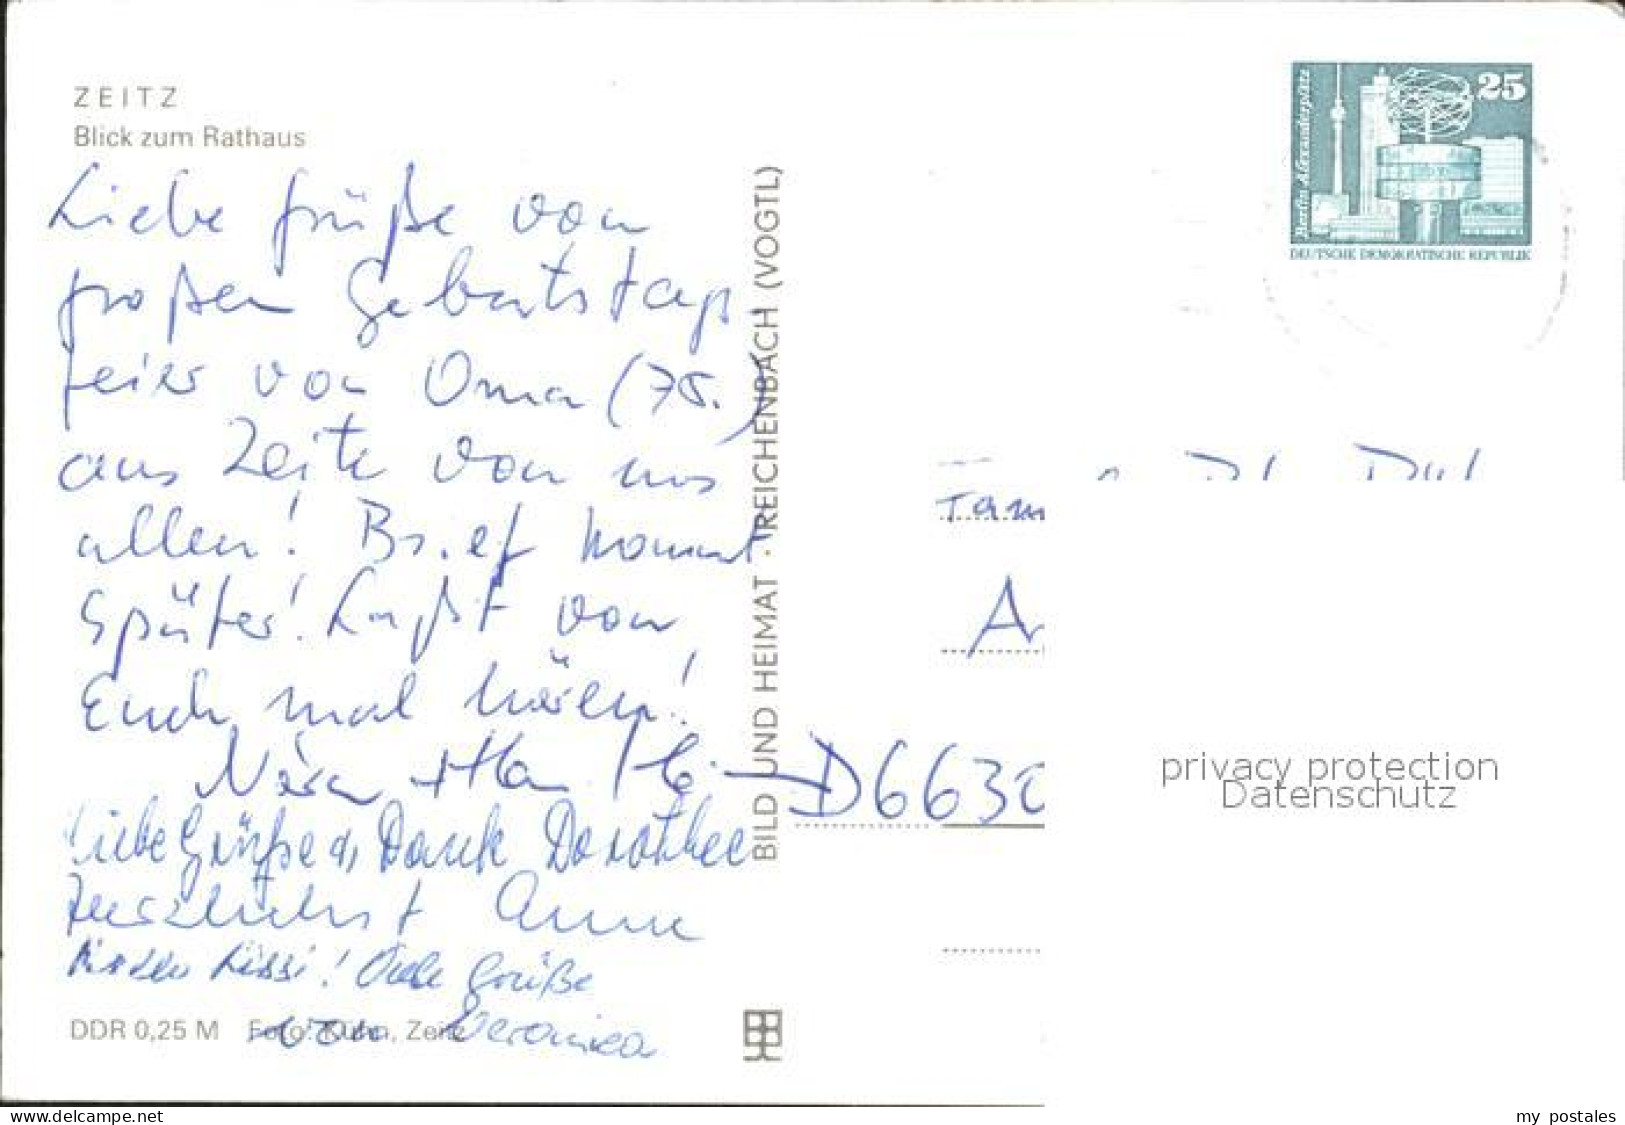 ZEITZ
Blick zum Rathaus
Liebe Grüße von
großen Geburtstags
feier von Oma (75.)
aus Zeitz von uns
allen! Brief kommt
später! Laßt von
Euch mal hören!
Liebe Grüße u. Dank Dorothee
Herzlichst Anne
Lissi! Viele Grüße
von Veronica
DDR 0,25 M Foto: Kühn, Zeitz
BILD UND HEIMAT · REICHENBACH (VOGTL)
Berlin Alexanderplatz
25
DEUTSCHE DEMOKRATISCHE REPUBLIK
Fam
D6630
privacy protection
Datenschutz
www.delcampe.net
my postales